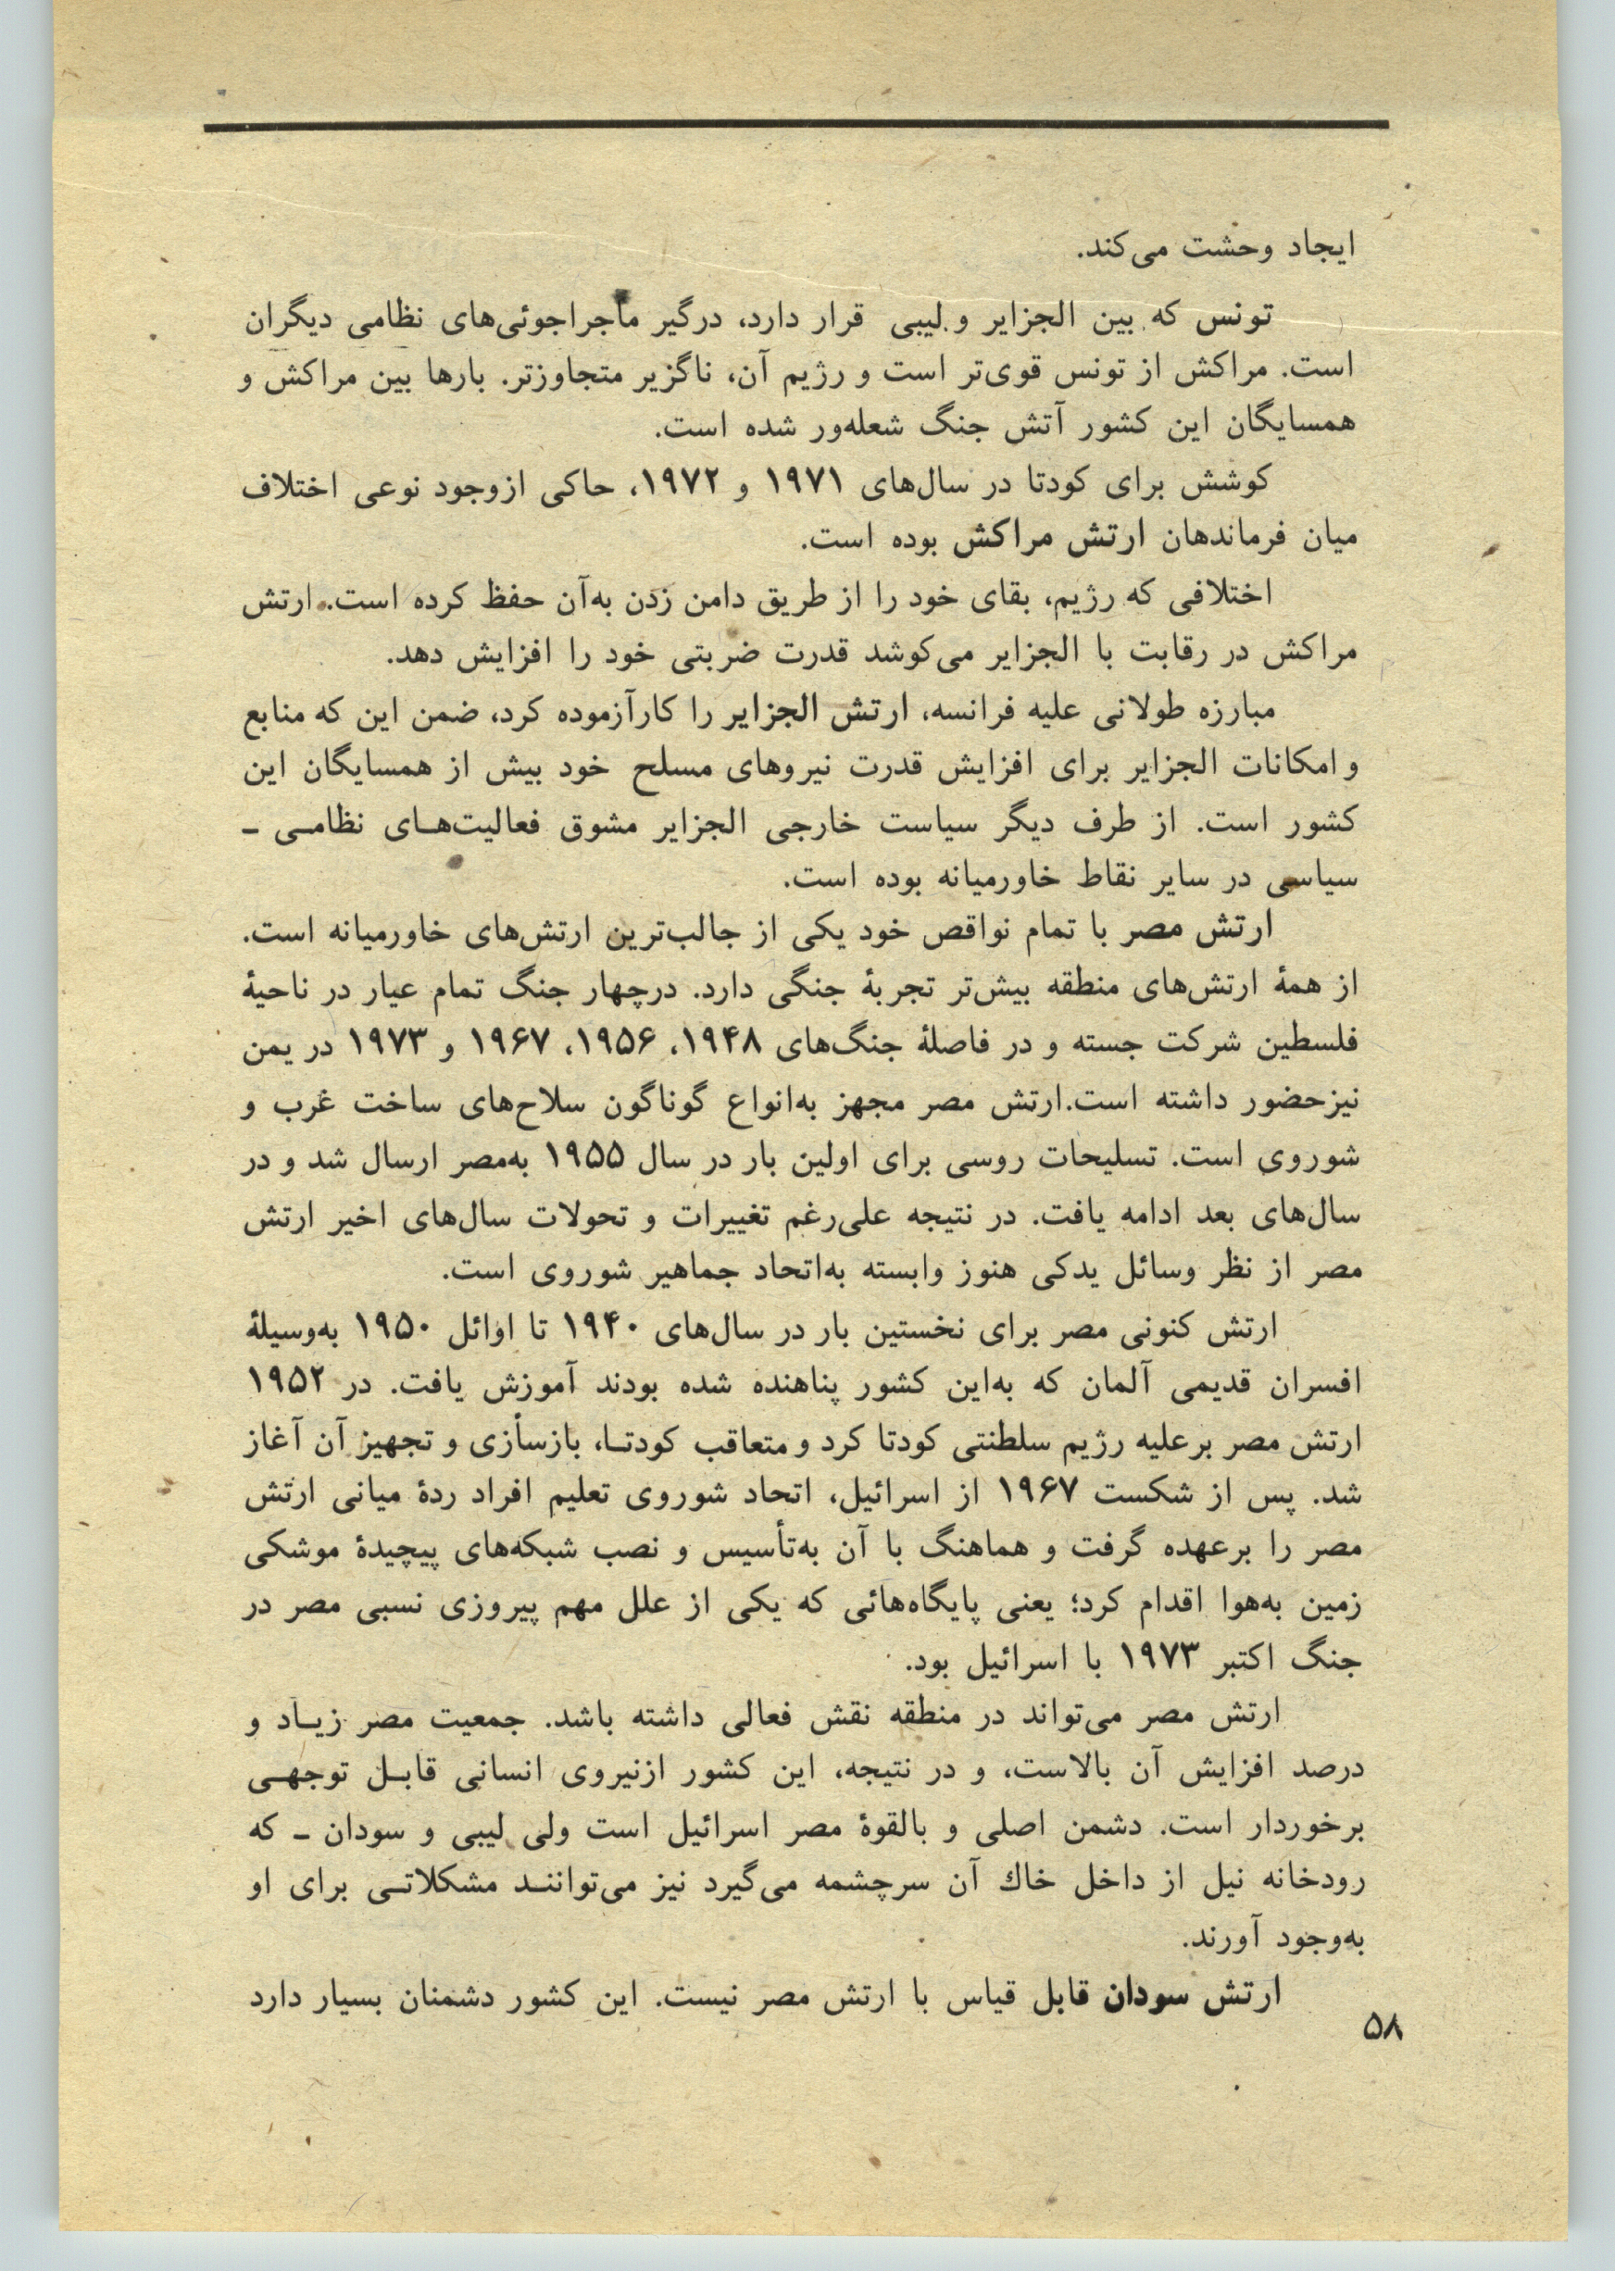 ایجاد وحشت می‌کند.
تونس که بین الجزایر و لیبی قرار دارد، درگیر ماجراجوئی‌های نظامی دیگران
است. مراکش از تونس قوی‌تر است و رژیم آن، ناگزیر متجاوزتر. بارها بین مراکش و
همسایگان این کشور آتش جنگ شعله‌ور شده است.
کوشش برای کودتا در سال‌های ۱۹۷۱ و ۱۹۷۲، حاکی ازوجود نوعی اختلاف
میان فرماندهان ارتش مراکش بوده است.
اختلافی که رژیم، بقای خود را از طریق دامن زدن به‌آن حفظ کرده است. ارتش
مراکش در رقابت با الجزایر می‌کوشد قدرت ضربتی خود را افزایش دهد.
مبارزه طولانی علیه فرانسه، ارتش الجزایر را کارآزموده کرد، ضمن این که منابع
و امکانات الجزایر برای افزایش قدرت نیروهای مسلح خود بیش از همسایگان این
کشور است. از طرف دیگر سیاست خارجی الجزایر مشوق فعالیت‌هـای نظامـی ـ
سیاسی در سایر نقاط خاورمیانه بوده است.
ارتش مصر با تمام نواقص خود یکی از جالب‌ترین ارتش‌های خاورمیانه است.
از همهٔ ارتش‌های منطقه بیش‌تر تجربهٔ جنگی دارد. درچهار جنگ تمام عیار در ناحیهٔ
فلسطین شرکت جسته و در فاصلهٔ جنگ‌های ۱۹۴۸، ۱۹۵۶، ۱۹۶۷ و ۱۹۷۳ در یمن
نیزحضور داشته است.ارتش مصر مجهز به‌انواع گوناگون سلاح‌های ساخت غرب و
شوروی است. تسلیحات روسی برای اولین بار در سال ۱۹۵۵ به‌مصر ارسال شد و در
سال‌های بعد ادامه یافت. در نتیجه علی‌رغم تغییرات و تحولات سال‌های اخیر ارتش
مصر از نظر وسائل یدکی هنوز وابسته به‌اتحاد جماهیر شوروی است.
ارتش کنونی مصر برای نخستین بار در سال‌های ۱۹۴۰ تا اوائل ۱۹۵۰ به‌وسیلهٔ
افسران قدیمی آلمان که به‌این کشور پناهنده شده بودند آموزش یافت. در ۱۹۵۲
ارتش مصر برعلیه رژیم سلطنتی کودتا کرد و متعاقب کودتـا، بازسازی و تجهیز آن آغاز
شد. پس از شکست ۱۹۶۷ از اسرائیل، اتحاد شوروی تعلیم افراد ردهٔ میانی ارتش
مصر را برعهده گرفت و هماهنگ با آن به‌تأسیس و نصب شبکه‌های پیچیدهٔ موشکی
زمین به‌هوا اقدام کرد؛ یعنی پایگاه‌هائی که یکی از علل مهم پیروزی نسبی مصر در
جنگ اکتبر ۱۹۷۳ با اسرائیل بود.
ارتش مصر می‌تواند در منطقه نقش فعالی داشته باشد. جمعیت مصر زیـاد و
درصد افزایش آن بالاست، و در نتیجه، این کشور ازنیروی انسانی قابـل توجهـی
برخوردار است. دشمن اصلی و بالقوهٔ مصر اسرائیل است ولی لیبی و سودان ـ که
رودخانه نیل از داخل خاك آن سرچشمه می‌گیرد نیز می‌تواننـد مشکلاتـی برای او
به‌وجود آورند.
ارتش سودان قابل قیاس با ارتش مصر نیست. این کشور دشمنان بسیار دارد
۵۸